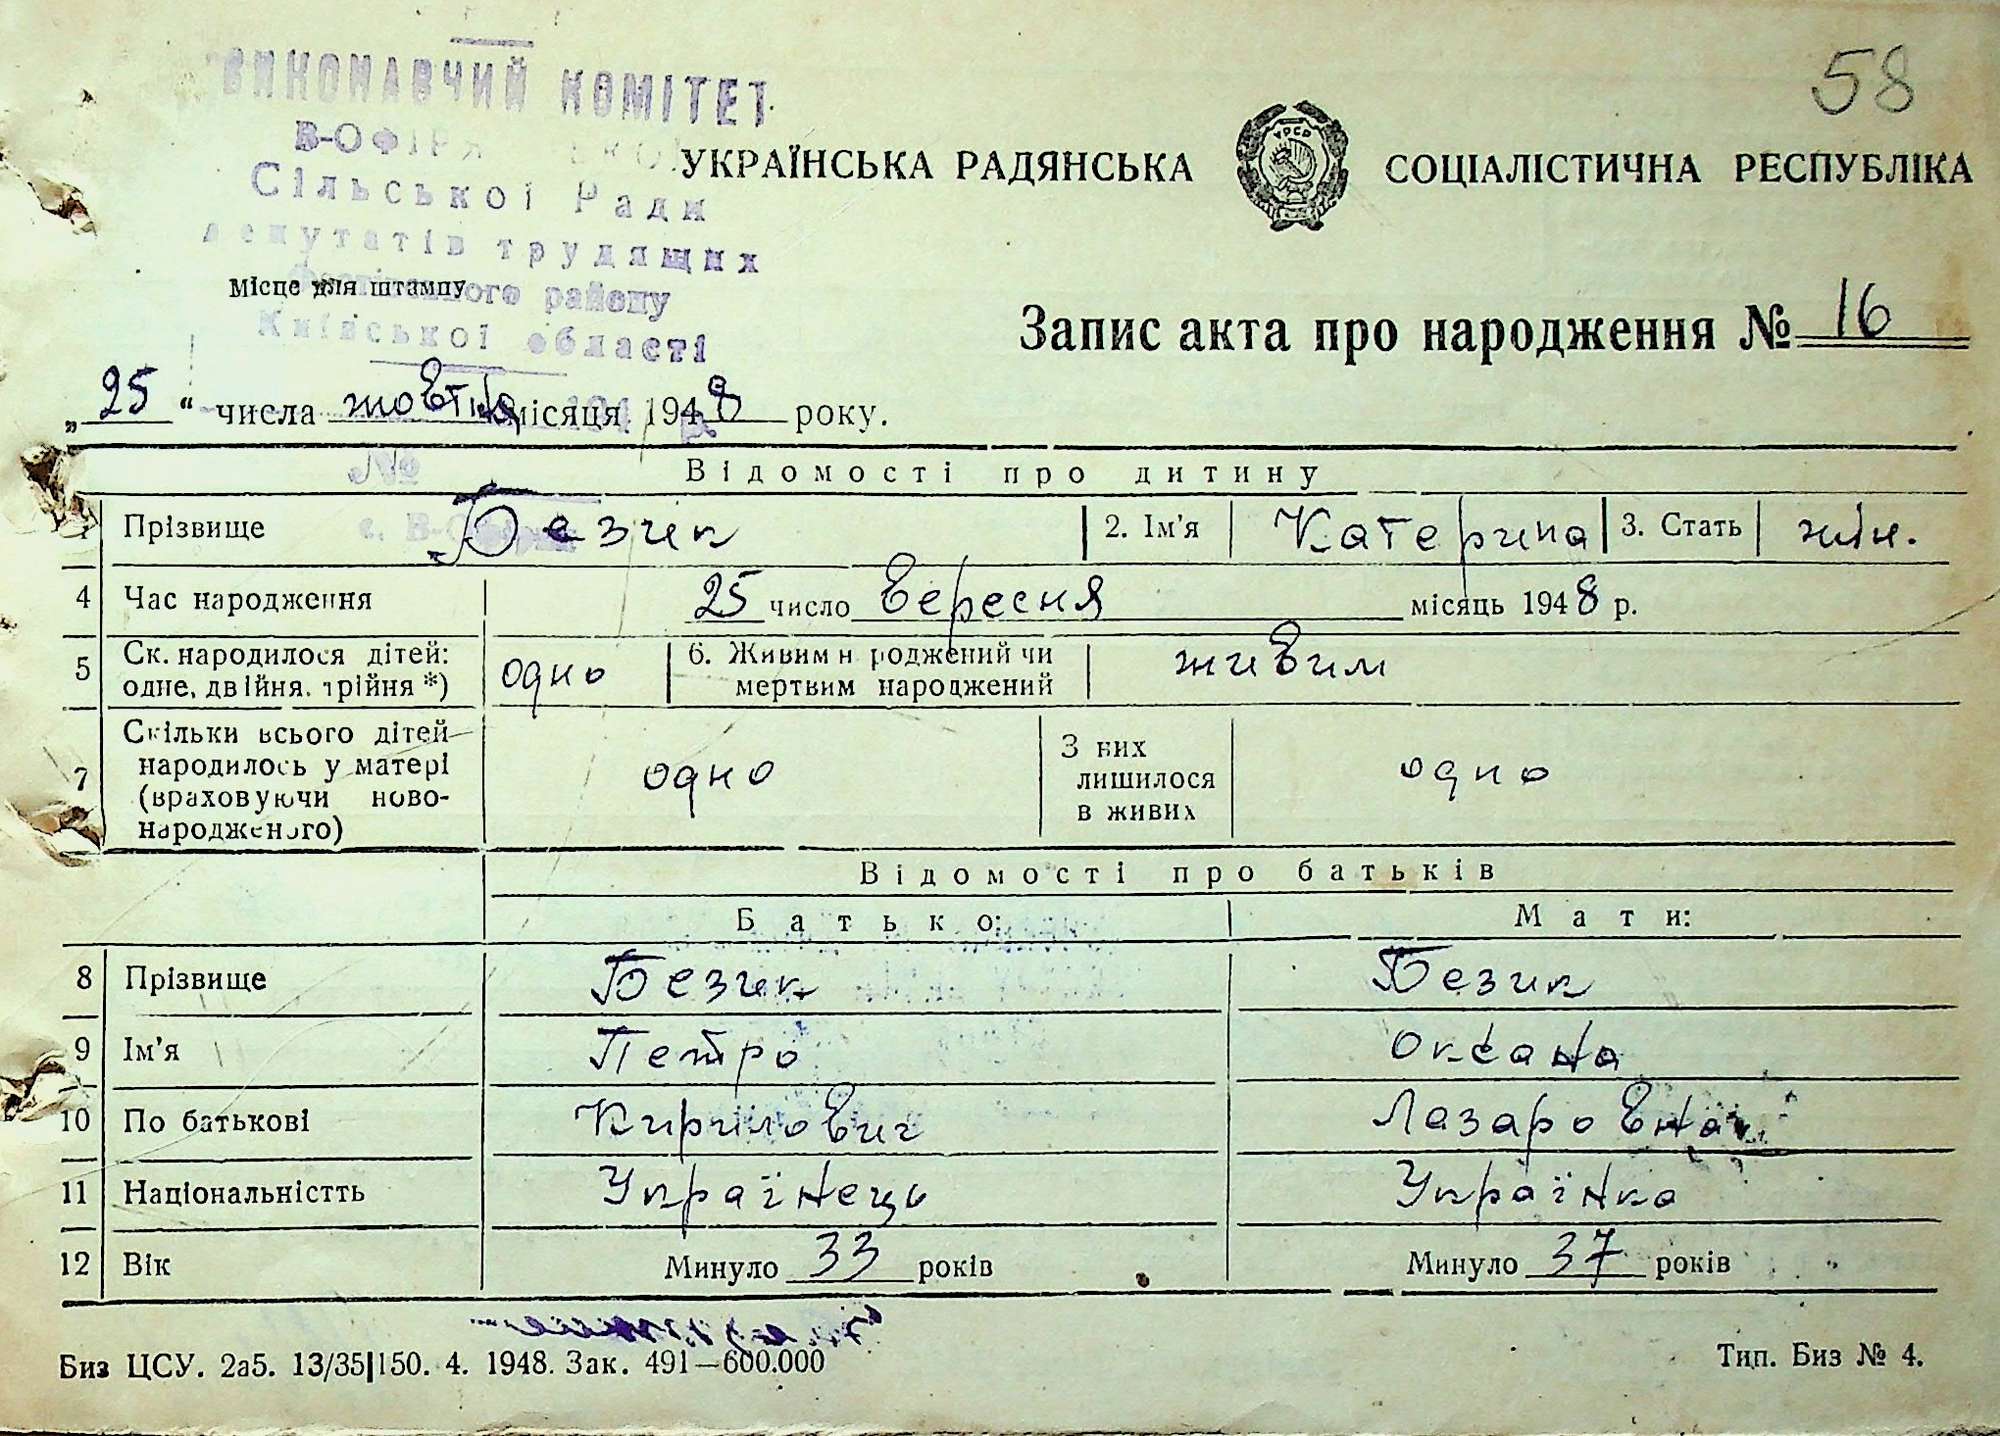 58
ВИКОНАВЧИЙ КОМІТЕТ
Сільської Ради
депутатів трудящих
району
Київської області
УКРАЇНСЬКА РАДЯНСЬКА СОЦІАЛІСТИЧНА РЕСПУБЛІКА
УРСР
Місце для штампу
Запис акта про народження № 16
„25“ числа жовтня місяця 1948 року.
№
Відомості про дитину
1 Прізвище Безик 2. Ім'я Катерина 3. Стать жін.
4 Час народження 25 число Вересня місяць 1948 р.
5 Ск. народилося дітей: одне, двійня, трійня *) одно 6. Живим народжений чи мертвим народжений живим
7 Скільки всього дітей народилось у матері (враховуючи ново-народженого) одно З них лишилося в живих одно
Відомості про батьків
Батько: Мати:
8 Прізвище Безик Безик
9 Ім'я Петро Оксана
10 По батькові Кирилович Лазаровна
11 Національністть Українець Українка
12 Вік Минуло 33 років Минуло 37 років
Биз ЦСУ. 2а5. 13/35|150. 4. 1948. Зак. 491—600.000 Тип. Биз № 4.